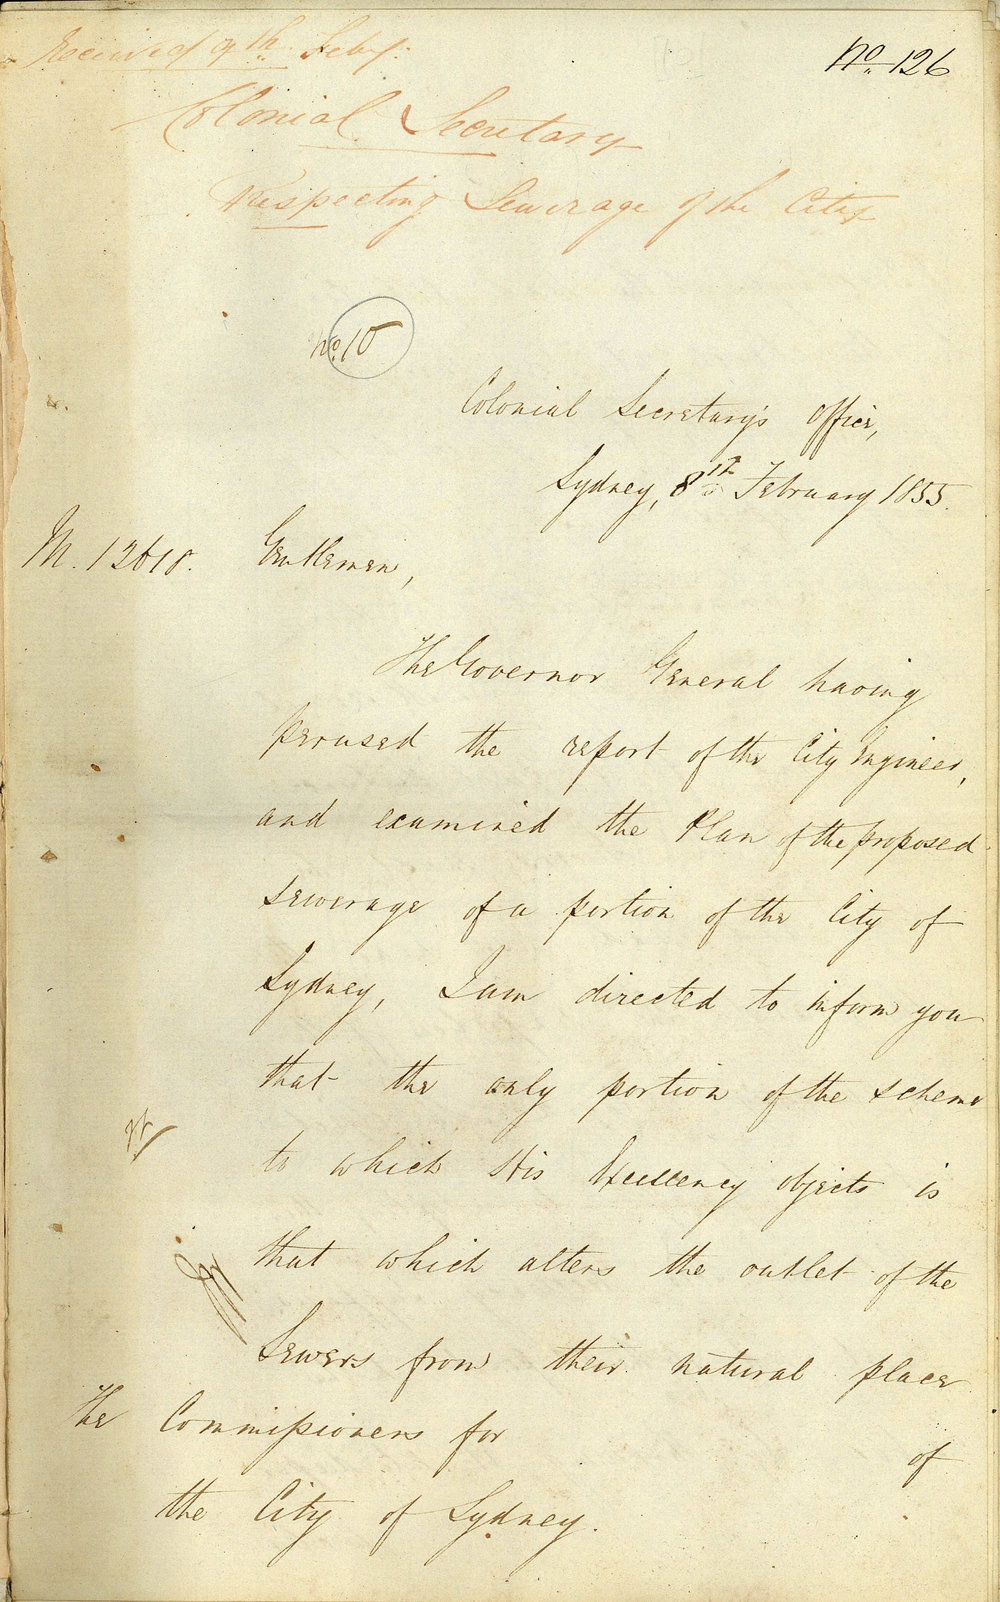 Received 9th Feby.
No. 126
Colonial Secretary
Respecting Sewerage of the City
No. 10
Colonial Secretary's Office,
Sydney, 8th February 1855.
Gentlemen,
The Governor General having
perused the report of the City Engineer,
and examined the Plan of the proposed
sewerage of a portion of the City of
Sydney, I am directed to inform you
that the only portion of the scheme
to which His Excellency objects is
that which alters the outlet of the
Sewers from their natural place
of
The Commissioners for
the City of Sydney.